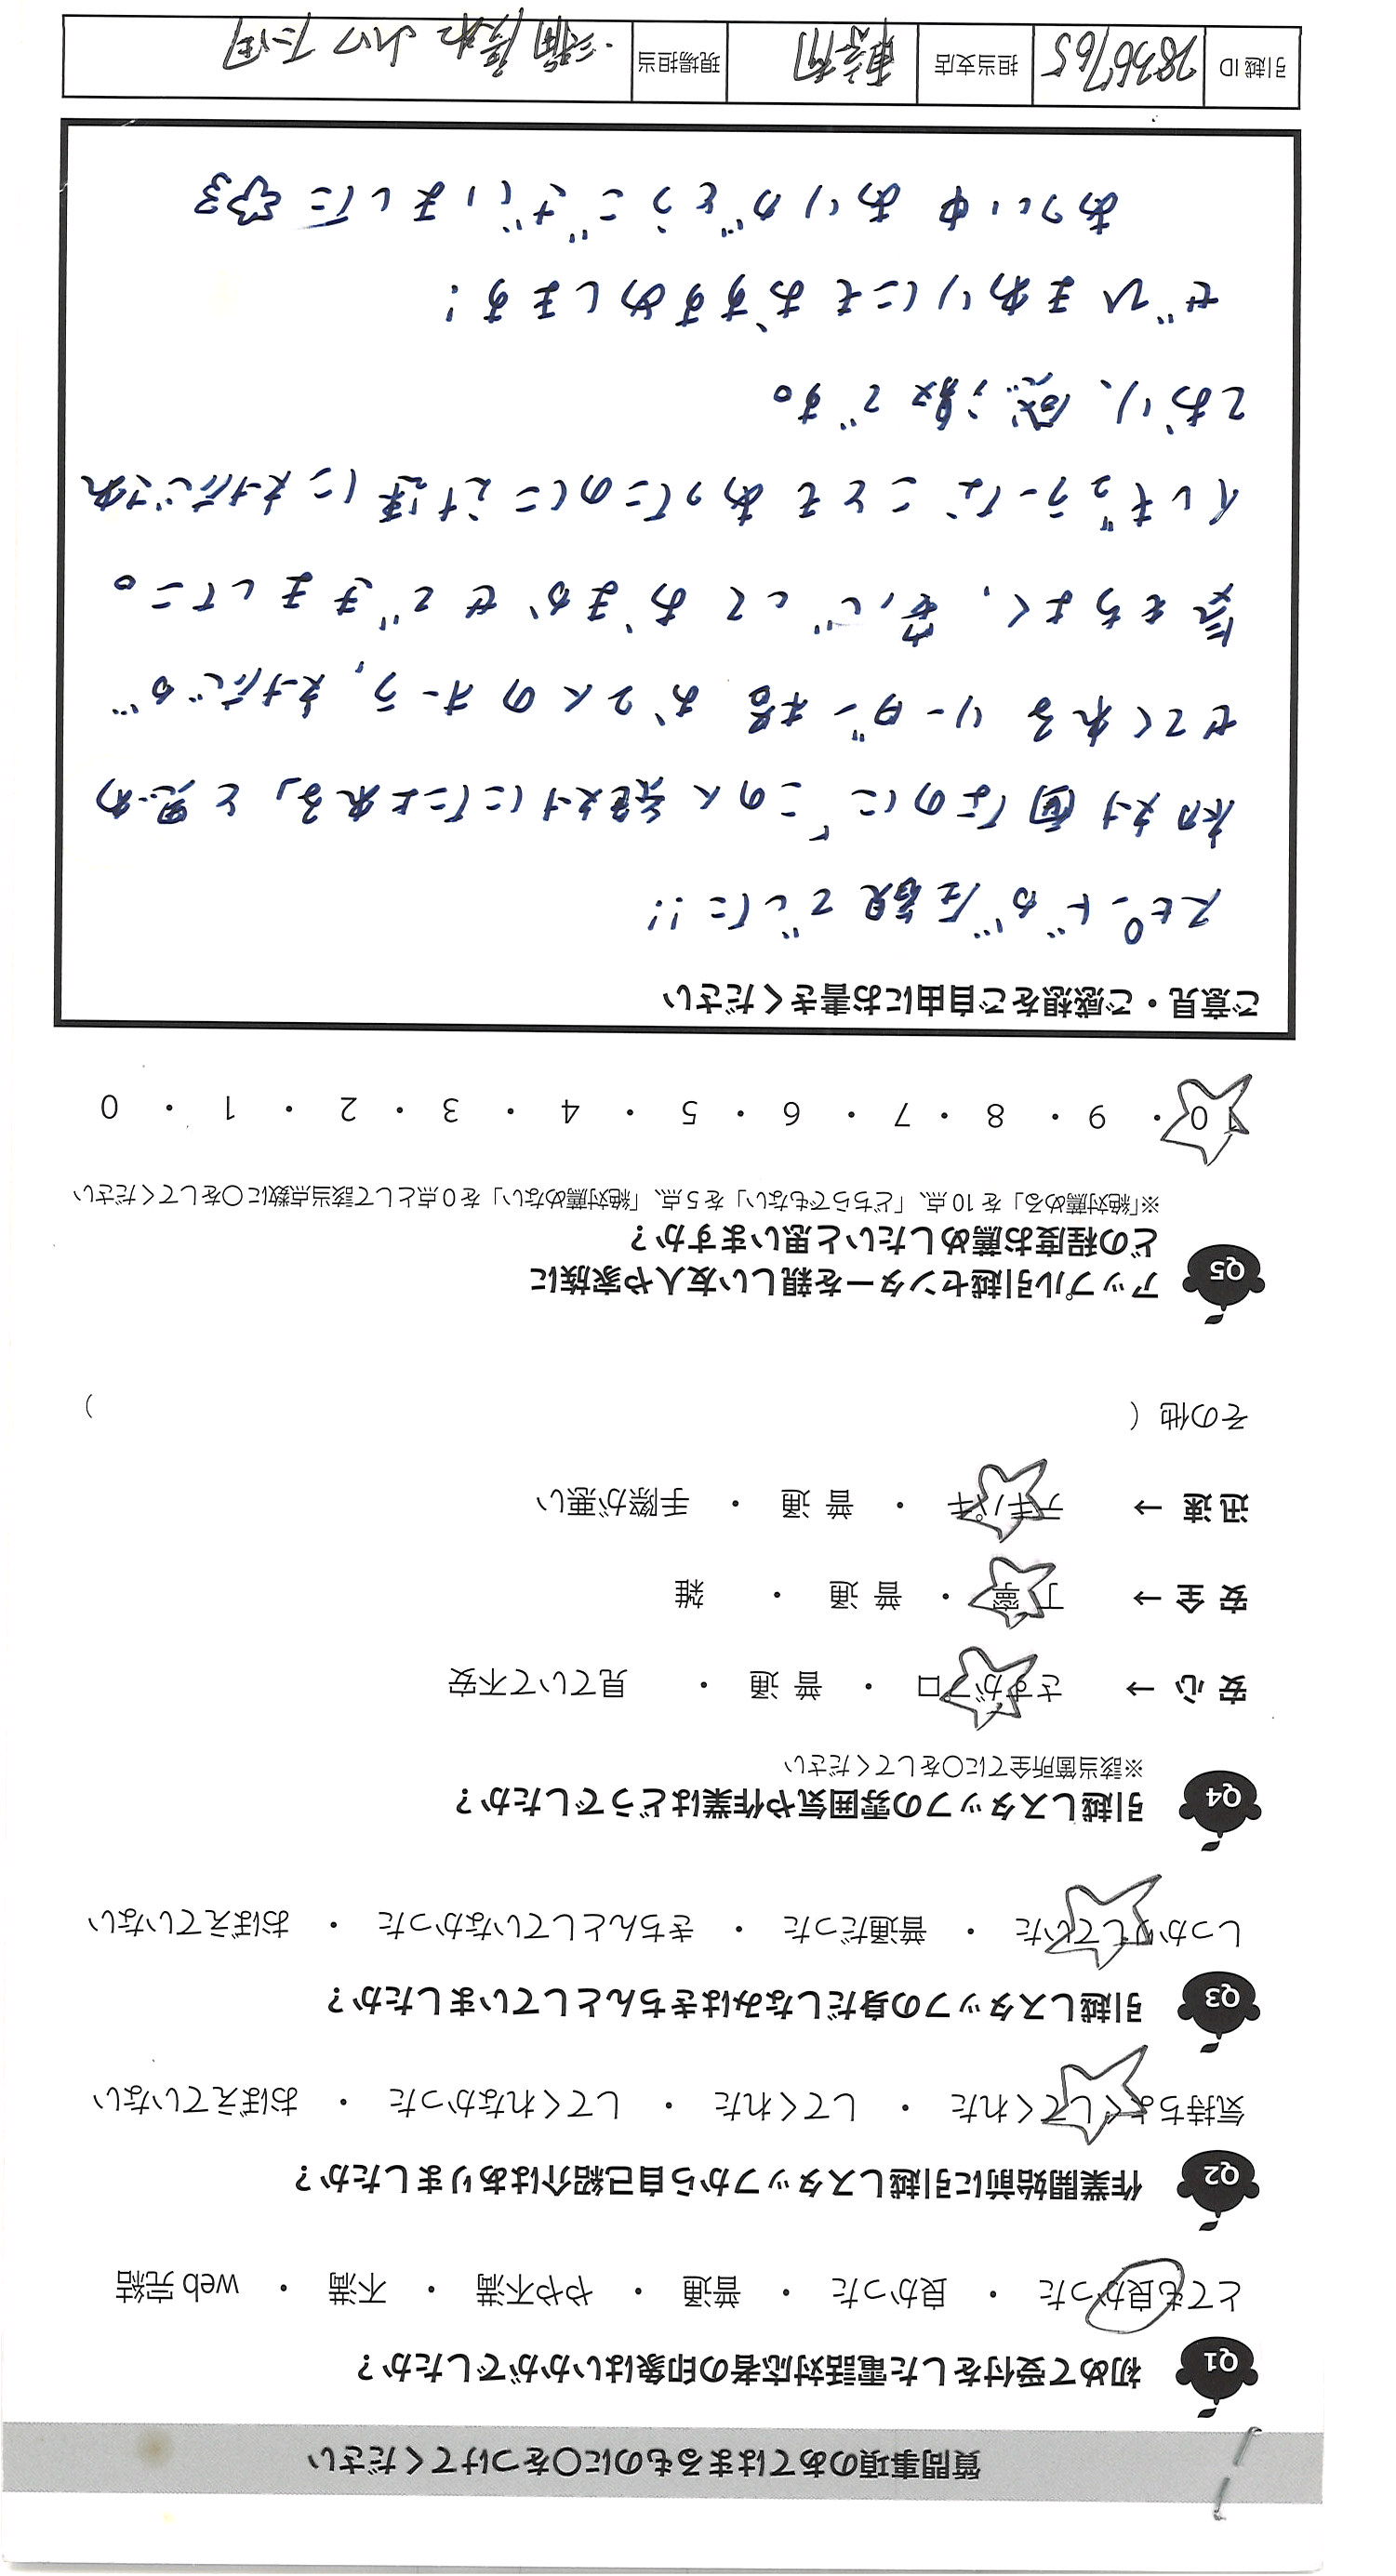 質問事項のあてはまるものに〇をつけてください
Q1 初めて受付をした電話対応者の印象はいかがでしたか？
とても良かった ・ 良かった ・ 普通 ・ やや不満 ・ 不満 ・ web 完結
Q2 作業開始前に引越しスタッフから自己紹介はありましたか？
気持ちよくしてくれた ・ してくれた ・ してくれなかった ・ おぼえていない
Q3 引越しスタッフの身だしなみはきちんとしていましたか？
しっかりしていた ・ 普通だった ・ きちんとしていなかった ・ おぼえていない
Q4 引越しスタッフの雰囲気や作業はどうでしたか？
※該当箇所全てに〇をしてください
安心 → さすがプロ ・ 普通 ・ 見ていて不安
安全 → 丁寧 ・ 普通 ・ 雑
迅速 → テキパキ ・ 普通 ・ 手際が悪い
その他 ( )
Q5 アップル引越センターを親しい友人や家族に
どの程度お薦めしたいと思いますか？
※「絶対薦める」を10点、「どちらでもない」を5点、「絶対薦めない」を0点として該当点数に〇をしてください
10 ・ 9 ・ 8 ・ 7 ・ 6 ・ 5 ・ 4 ・ 3 ・ 2 ・ 1 ・ 0
ご意見・ご感想をご自由にお書きください
スピードが圧巻でした!!
初対面なのに「この人絶対にたよれる」と思わ
せてくれるリーダー格お2人のオーラ、対応が
気もちよく、安心しておまかせできました。
イレギュラーなこともあったのに迅速に対応され
ており、感激です。
ぜひまわりにもおすすめします!
あつい中ありがとうございました
引越ID 28367765 担当支店 現場担当